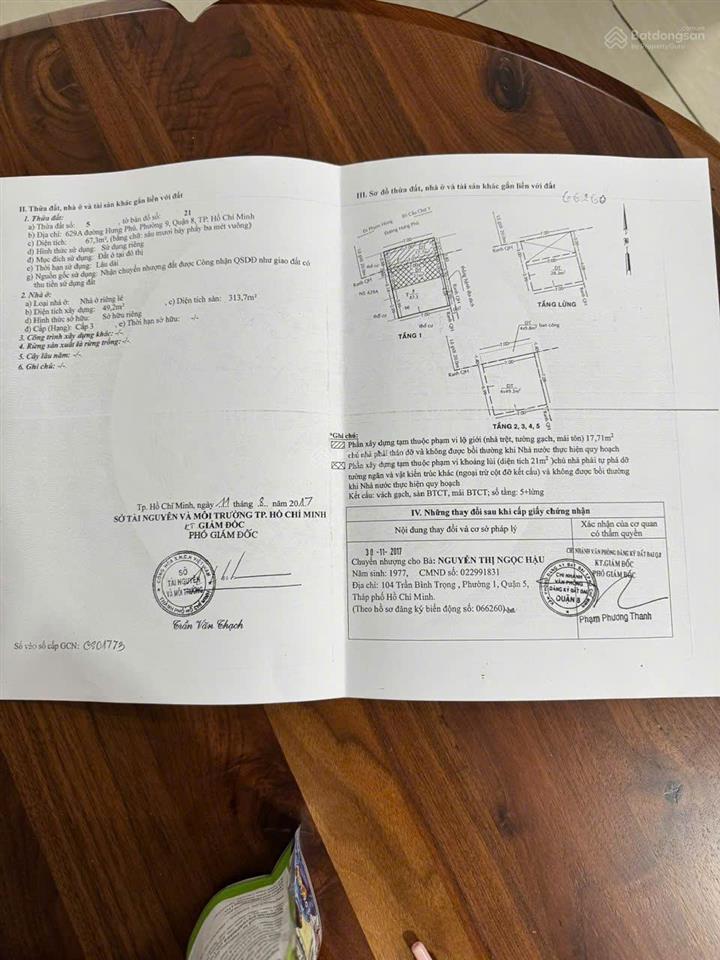 Batdongsan
by PropertyGuru
II. Thửa đất, nhà ở và tài sản khác gắn liền với đất
1. Thửa đất:
a) Thửa đất số: 5 , tờ bản đồ số: 21
b) Địa chỉ: 629A đường Hưng Phú, Phường 9, Quận 8, TP. Hồ Chí Minh
c) Diện tích: 67,3m², (bằng chữ: sáu mươi bảy phẩy ba mét vuông)
d) Hình thức sử dụng: Sử dụng riêng
đ) Mục đích sử dụng: Đất ở tại đô thị
e) Thời hạn sử dụng: Lâu dài
g) Nguồn gốc sử dụng: Nhận chuyển nhượng đất được Công nhận QSDĐ như giao đất có
thu tiền sử dụng đất
2. Nhà ở:
a) Loại nhà ở: Nhà ở riêng lẻ
b) Diện tích xây dựng: 49,2m² , c) Diện tích sàn: 313,7m²
d) Hình thức sở hữu: Sở hữu riêng
đ) Cấp (Hạng): Cấp 3 , e) Thời hạn sở hữu: -/-
3. Công trình xây dựng khác: -/-
4. Rừng sản xuất là rừng trồng: -/-
5. Cây lâu năm: -/-
6. Ghi chú: -/-
Tp. Hồ Chí Minh, ngày 11 tháng 8 năm 2017
SỞ TÀI NGUYÊN VÀ MÔI TRƯỜNG TP. HỒ CHÍ MINH
KT GIÁM ĐỐC
PHÓ GIÁM ĐỐC
SỞ
TÀI NGUYÊN
VÀ MÔI TRƯỜNG
Trần Văn Thạch
Số vào sổ cấp GCN: CS01773
III. Sơ đồ thửa đất, nhà ở và tài sản khác gắn liền với đất
66260
Đi Phạm Hùng
Đi Cầu Chữ Y
Đường Hưng Phú
Ranh QH
NS 629A
thổ cư
TẦNG 1
Ranh QH
TẦNG LỬNG
ĐT
4x9.8m² ban công
Ranh QH
ĐT
4x49.2m²
Ranh QH
TẦNG 2, 3, 4, 5
*Ghi chú:
Phần xây dựng tạm thuộc phạm vi lộ giới (nhà trệt, tường gạch, mái tôn) 17,71m²
chủ nhà phải tháo dỡ và không được bồi thường khi Nhà nước thực hiện quy hoạch
Phần xây dựng tạm thuộc phạm vi khoảng lùi (diện tích 21m² )chủ nhà phải tự phá dỡ
tường ngăn và vật kiến trúc khác (ngoại trừ cột đỡ kết cấu) và không được bồi thường
khi Nhà nước thực hiện quy hoạch
Kết cấu: vách gạch, sàn BTCT, mái BTCT; số tầng: 5+lửng
IV. Những thay đổi sau khi cấp giấy chứng nhận
Nội dung thay đổi và cơ sở pháp lý
Xác nhận của cơ quan
có thẩm quyền
30 -11- 2017
Chuyển nhượng cho Bà: NGUYỄN THỊ NGỌC HẬU
Năm sinh: 1977, CMND số: 022991831
Địa chỉ: 104 Trần Bình Trọng , Phường 1, Quận 5,
Thàp phố Hồ Chí Minh.
(Theo hồ sơ đăng ký biến động số: 066260)
CHI NHÁNH VĂN PHÒNG ĐĂNG KÝ ĐẤT ĐAI Q.8
KT.GIÁM ĐỐC
PHÓ GIÁM ĐỐC
CHI NHÁNH
VĂN PHÒNG
ĐĂNG KÝ ĐẤT ĐAI
QUẬN 8
Phạm Phương Thanh